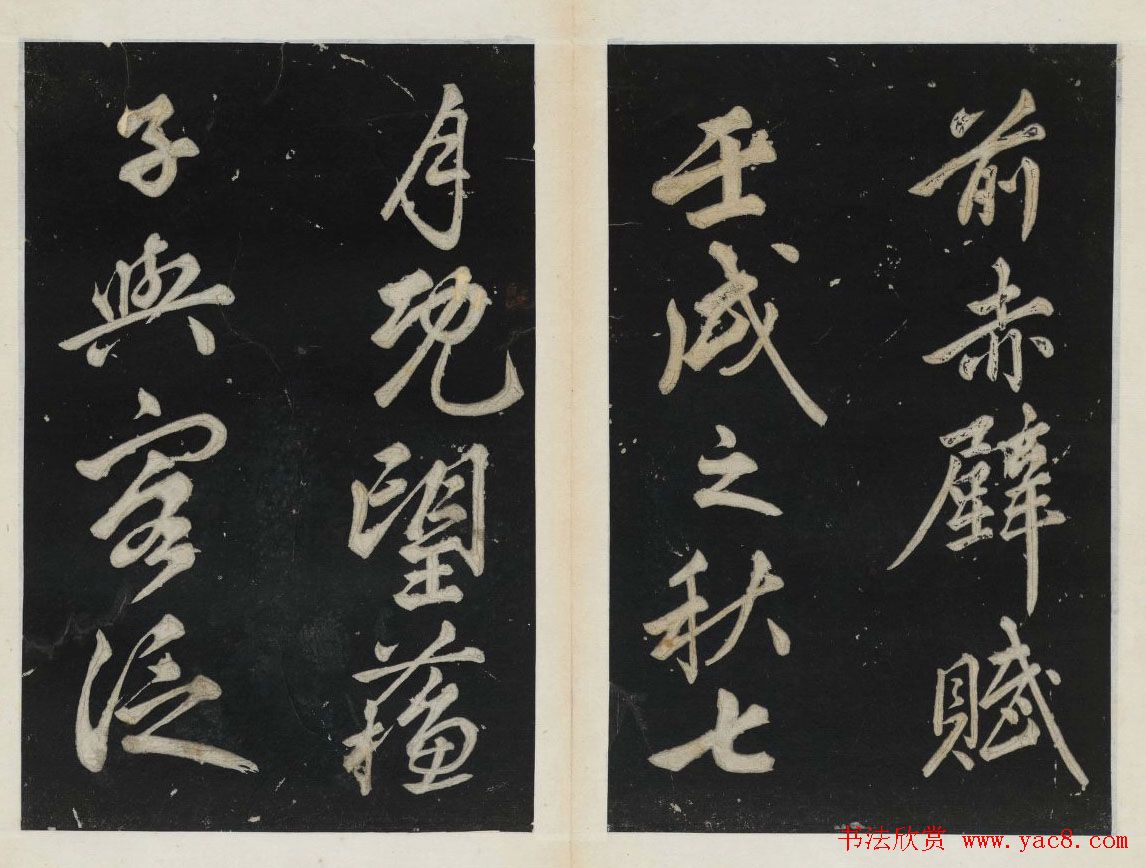 前赤壁賦
壬戌之秋七
月既望蘇
子與客泛
书法欣赏 www.yac8.com